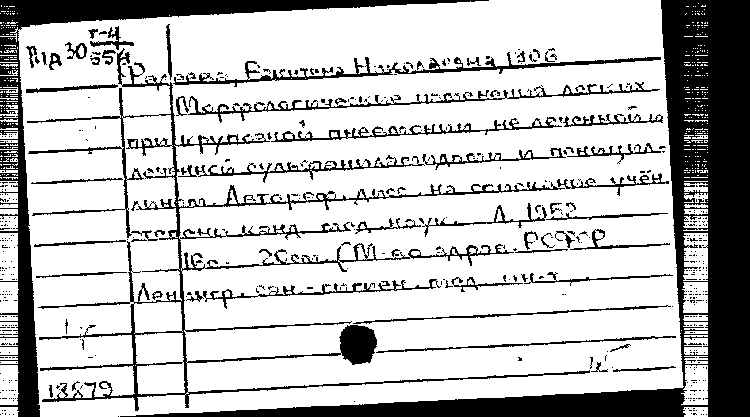 Г-4
П1д30 554
Николаевна, 1906
Морфологические изменения легких
при крупозной пневмонии, не леченной и
леченной сульфаниламидами и пеницил-
лином. Автореф. дисс. на соискание учён.
степени канд. мед. наук. Л., 1952
16с. 20см. (М-во здрав. РСФСР
Ленингр. сан.-гигиен. мед. ин-т.
18879